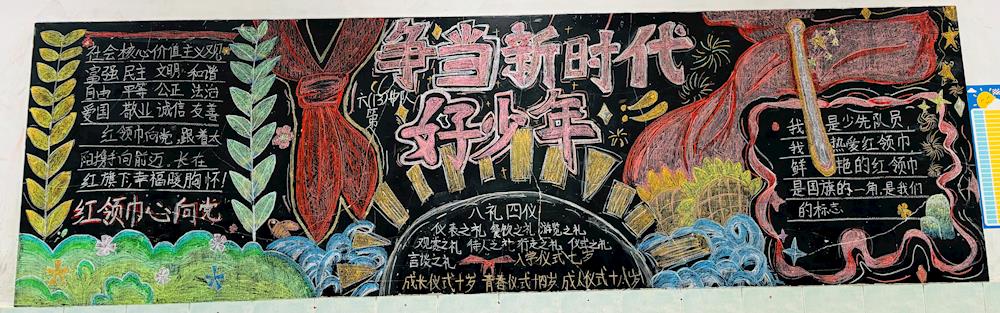 争当新时代
好少年
社会核心价值主义观
富强 民主 文明 和谐
自由 平等 公正 法治
爱国 敬业 诚信 友善
红领巾向党,跟着太
阳携手向前迈,长在
红旗下幸福暖胸怀!
红领巾心向党
八礼四仪
仪表之礼 餐饮之礼 游览之礼
观赏之礼 待人之礼 行走之礼 仪式之礼
言谈之礼 入学仪式七岁
成长仪式十岁 青春仪式十四岁 成人仪式十八岁
我是少先队员,
我热爱红领巾
鲜艳的红领巾
是国旗的一角,是我们
的标志